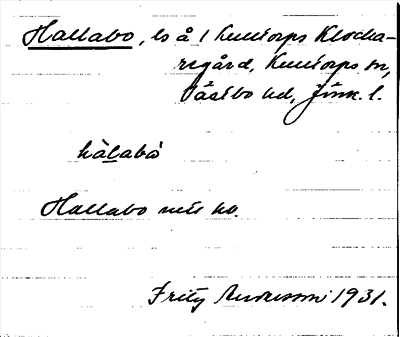 Hallabo, ls å 1 Kulltorps Klocka-
regård, Kulltorps sn,
Västbo hd, Jönk. l.
hàlabo
Hallabo
Fritz Andersson 1931.